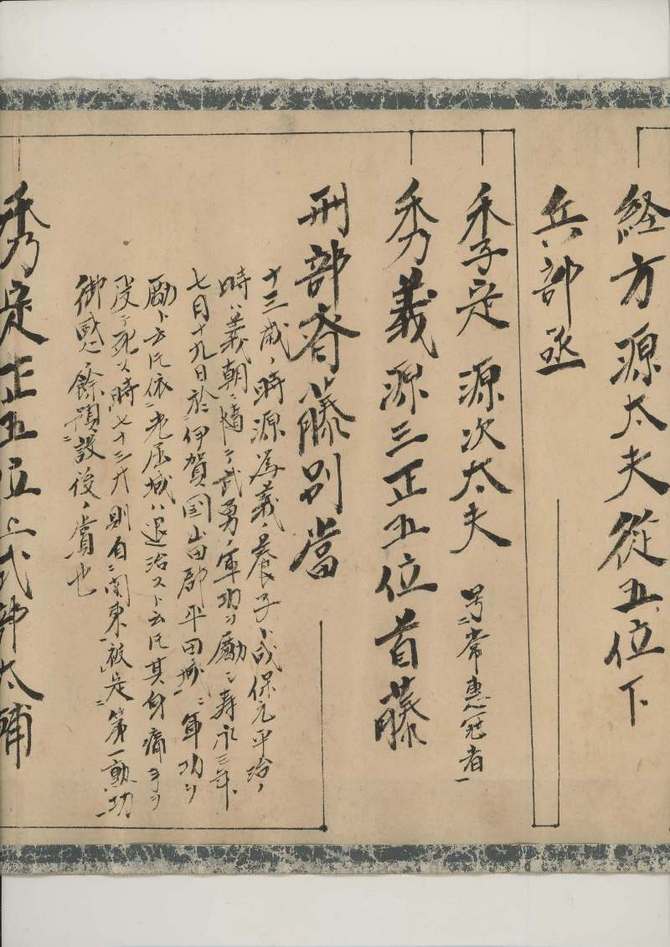 経方源太夫従五位下
兵部丞
季定 源次太夫 号常恵冠者
秀義源三正五位首藤
刑部斎藤別當
十三歳ノ時源為義ノ養子ト成保元平治ノ
時ハ義朝ニ随テ武勇ノ軍功ヲ励ニ寿永三年
七月十九日於伊賀国山田郡平田城ニ軍功ヲ
励ト云ヘ氏依老屈城ハ退治スト云氏其身痛手ヲ
死ス時七十三才則自関東被定第一勲功
御感餘預設後ノ賞也
秀定正五位上式部太輔